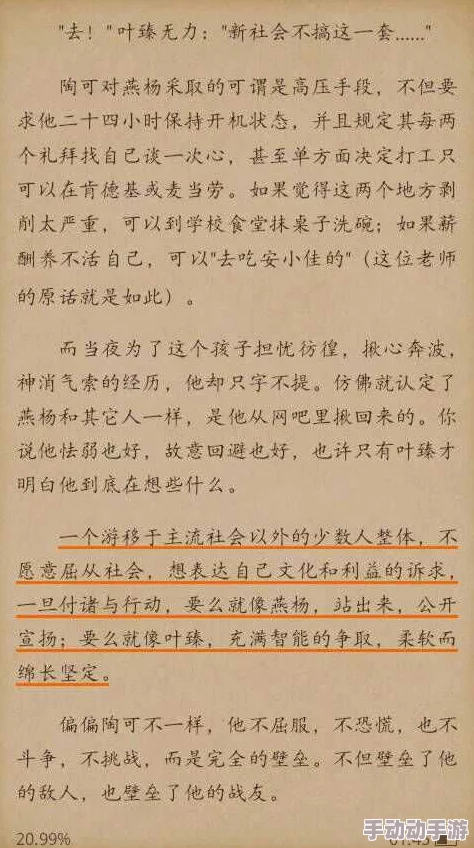 "去！"叶臻无力："新社会不搞这一套……"
陶可对燕杨采取的可谓是高压手段，不但要
求他二十四小时保持开机状态，并且规定其每两
个礼拜找自己谈一次心，甚至单方面决定打工只
可以在肯德基或麦当劳。如果觉得这两个地方剥
削太严重，可以到学校食堂抹桌子洗碗；如果薪
酬养不活自己，可以"去吃安小佳的"（这位老师
的原话就是如此）。
而当夜为了这个孩子担忧彷徨，揪心奔波，
神消气索的经历，他却只字不提。仿佛就认定了
燕杨和其它人一样，是他从网吧里揪回来的。你
说他怯弱也好，故意回避也好，也许只有叶臻才
明白他到底在想些什么。
一个游移于主流社会以外的少数人整体，不
愿意屈从社会，想表达自己文化和利益的诉求，
一旦付诸与行动，要么就像燕杨，站出来，公开
宣扬；要么就像叶臻，充满智能的争取，柔软而
绵长坚定。
偏偏陶可不一样，他不屈服，不恐慌，也不
斗争，不挑战，而是完全的壁垒。不但壁垒了他
的敌人，也壁垒了他的战友。
20.99%
手动动手游